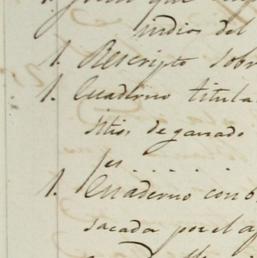 que
indios del
1. Rescripto sobr
1. Cuaderno titula
sitios de ganado
1. Cuaderno con
sacada por el a